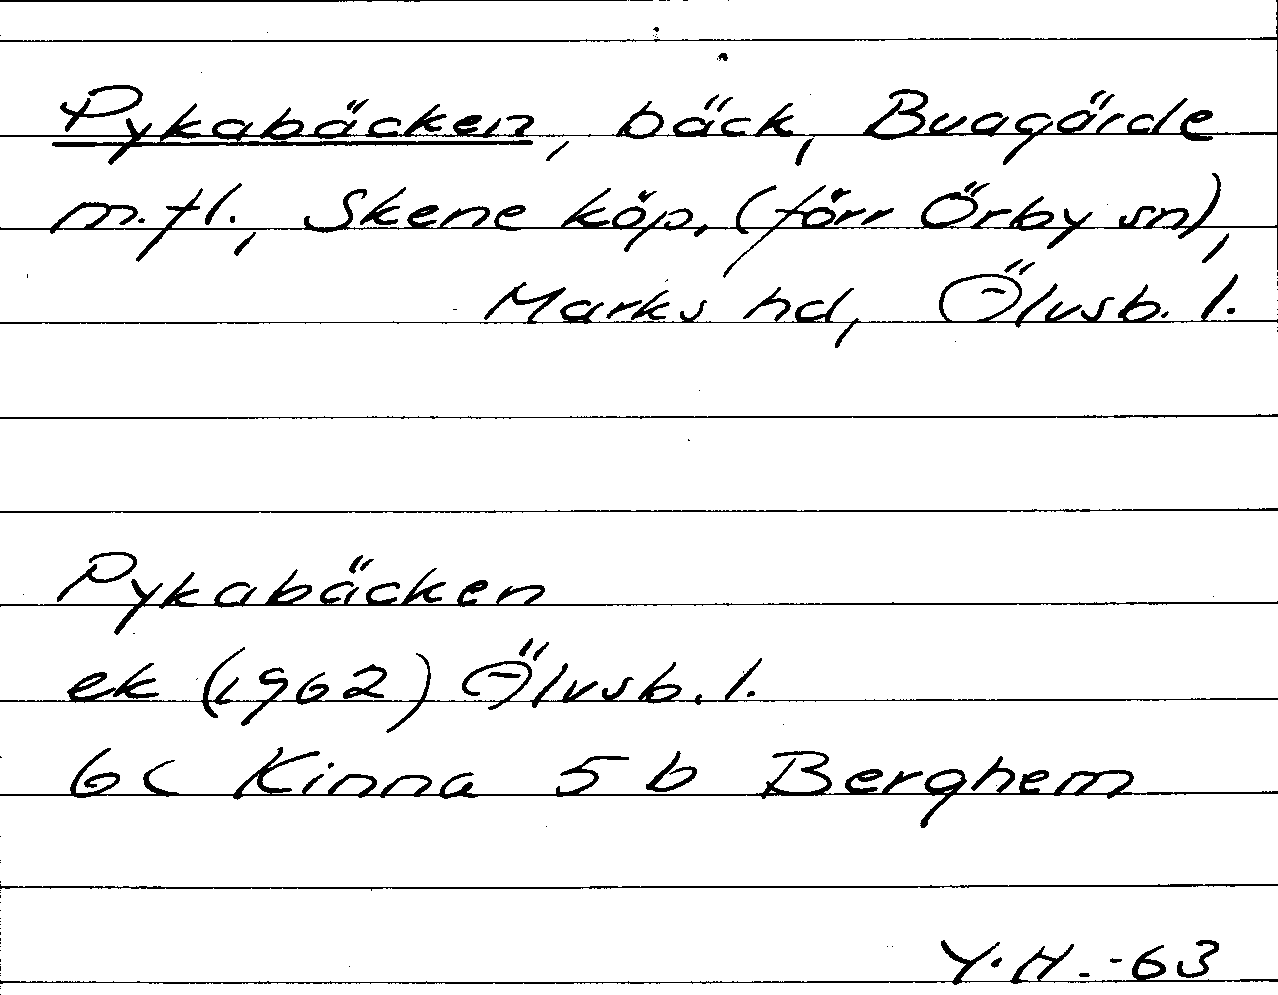 Pykabäcken, bäck, Buagärde
m.fl., Skene köp. (förr Örby sn),
Marks hd, Älvsb. l.
Pykabäcken
ek (1962) Älvsb. l.
6c Kinna 5 b Berghem
Y.H.-63